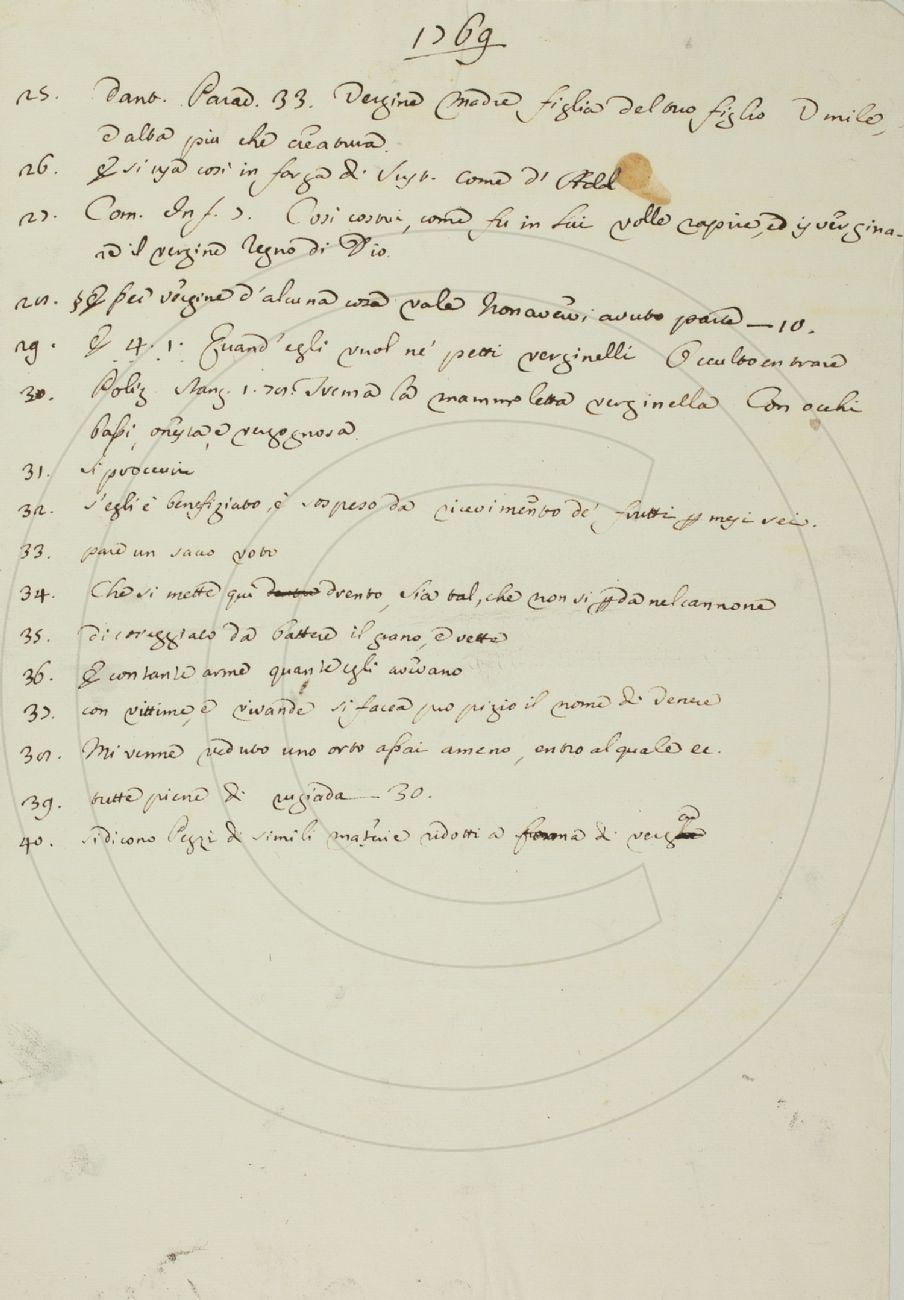 1769
25. Dant. Parad. 33. Vergine Madre figlia del tuo figlio Umile,
e alta più che creatura.
26. E si usa così in forza di Sust. come d' Add
27. Com. Inf. 7. Così costui, come fu in lui volle rapire, ed isvergina-
re il vergine Regno di Dio.
28. § E per vergine d'alcuna cosa vale Non avervi avuto parte — 10.
29. E 4. 1. Quand' egli vuol ne' petti verginelli Occulto entrare
30. Poliz. Stanz. 1. 78. Trema la mammoletta verginella Con occhi
bassi, onesta, e vergognosa.
31. si proccuri
32. s'egli è benefiziato, è sospeso da ricevimento de' frutti p mesi sei.
33. pare un sacco voto
34. Che si mette quì drento, sia tal, che non si pda nel cannone
35. di coreggiato da battere il grano, e vette
36. E con tante arme quante egli avevano
37. con vittime, e vivande si facea propizio il nome di Venere
38. Mi venne veduto uno orto assai ameno, entro al quale ec.
39. tutte piene di rugiada — 30.
40. si dicono Pezzi di simili materie ridotti a forma di verga